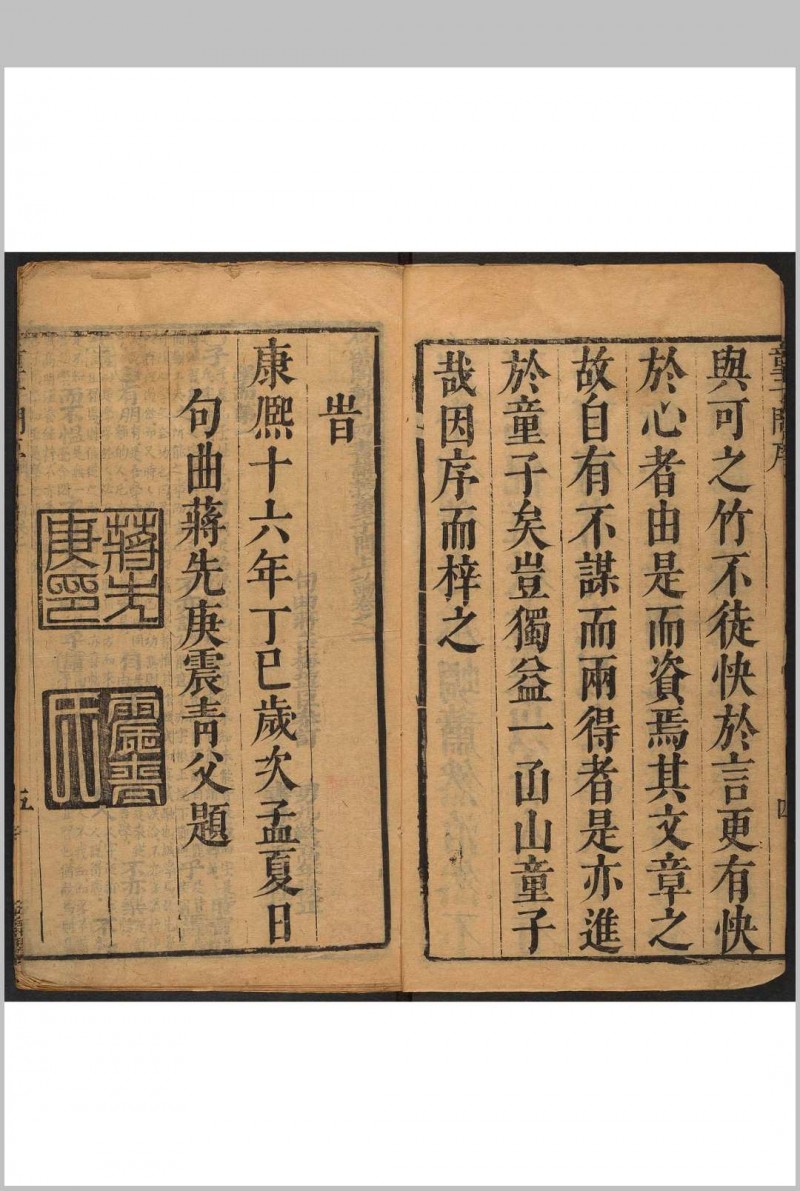 與可之竹不徒快於言更有快
於心者由是而資焉其文章之
故自有不謀而兩得者是亦進
於童子矣豈獨益一凾山童子
哉因序而梓之
旹
康熈十六年丁巳歲次孟夏日
句曲蔣先庚震青父題
蔣先庚印
震青氏
五